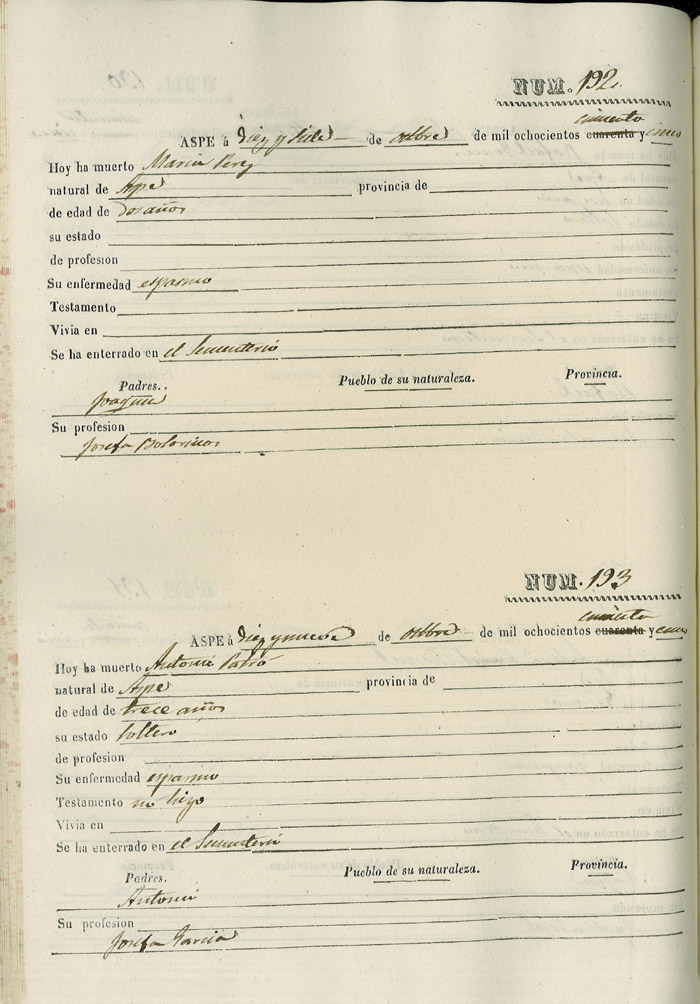 NUM. 192.
cincuenta
ASPE á diez y siete de octbre de mil ochocientos cuarenta y cinco
Hoy ha muerto Maria Perez
natural de Aspe provincia de
de edad de dos años
su estado
de profesion
Su enfermedad espasmo
Testamento
Vivia en
Se ha enterrado en el Sementerio
Padres. Pueblo de su naturaleza. Provincia.
Joaquin
Su profesion
Josefa Bolorinos
NUM. 193
cincuenta
ASPE á diez y nueve de octbre de mil ochocientos cuarenta y cinco
Hoy ha muerto Antonio
natural de Aspe provincia de
de edad de trece años
su estado soltero
de profesion
Su enfermedad espasmo
Testamento no hizo
Vivia en
Se ha enterrado en el Sementerio
Padres. Pueblo de su naturaleza. Provincia.
Antonio
Su profesion
Josefa Garcia